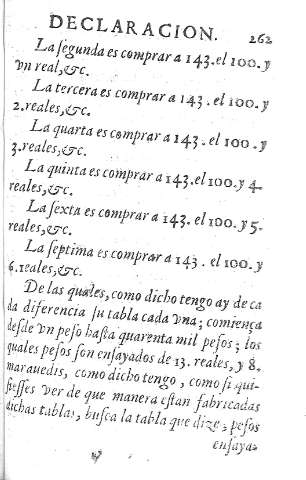 DECLARACION. 262
La ſegunda es comprar a 143. el 100. y
vn real, &c.
La tercera es comprar a 143. el 100. y
2. reales, &c.
La quarta es comprar a 143. el 100. y
3. reales, &c.
La quinta es comprar a 143. el 100. y 4.
reales, &c.
La ſexta es comprar a 143. el 100. y 5.
reales, &c.
La ſeptima es comprar a 143. el 100. y
6. reales, &c.
De las quales, como dicho tengo ay de ca
da diferencia ſu tabla cada vna; comiença
deſde vn peſo haſta quarenta mil peſos; los
quales peſos ſon enſayados de 13. reales, y 8.
marauedis, como dicho tengo, como ſi qui-
ſieſſes ver de que manera eſtan fabricadas
dichas tablas, buſca la tabla que dize, peſos
enſaya-